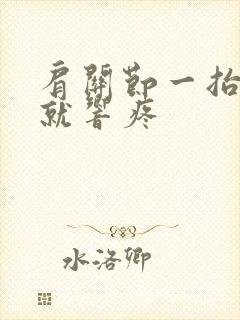 肩關節一抬
就響疼
水洛卿